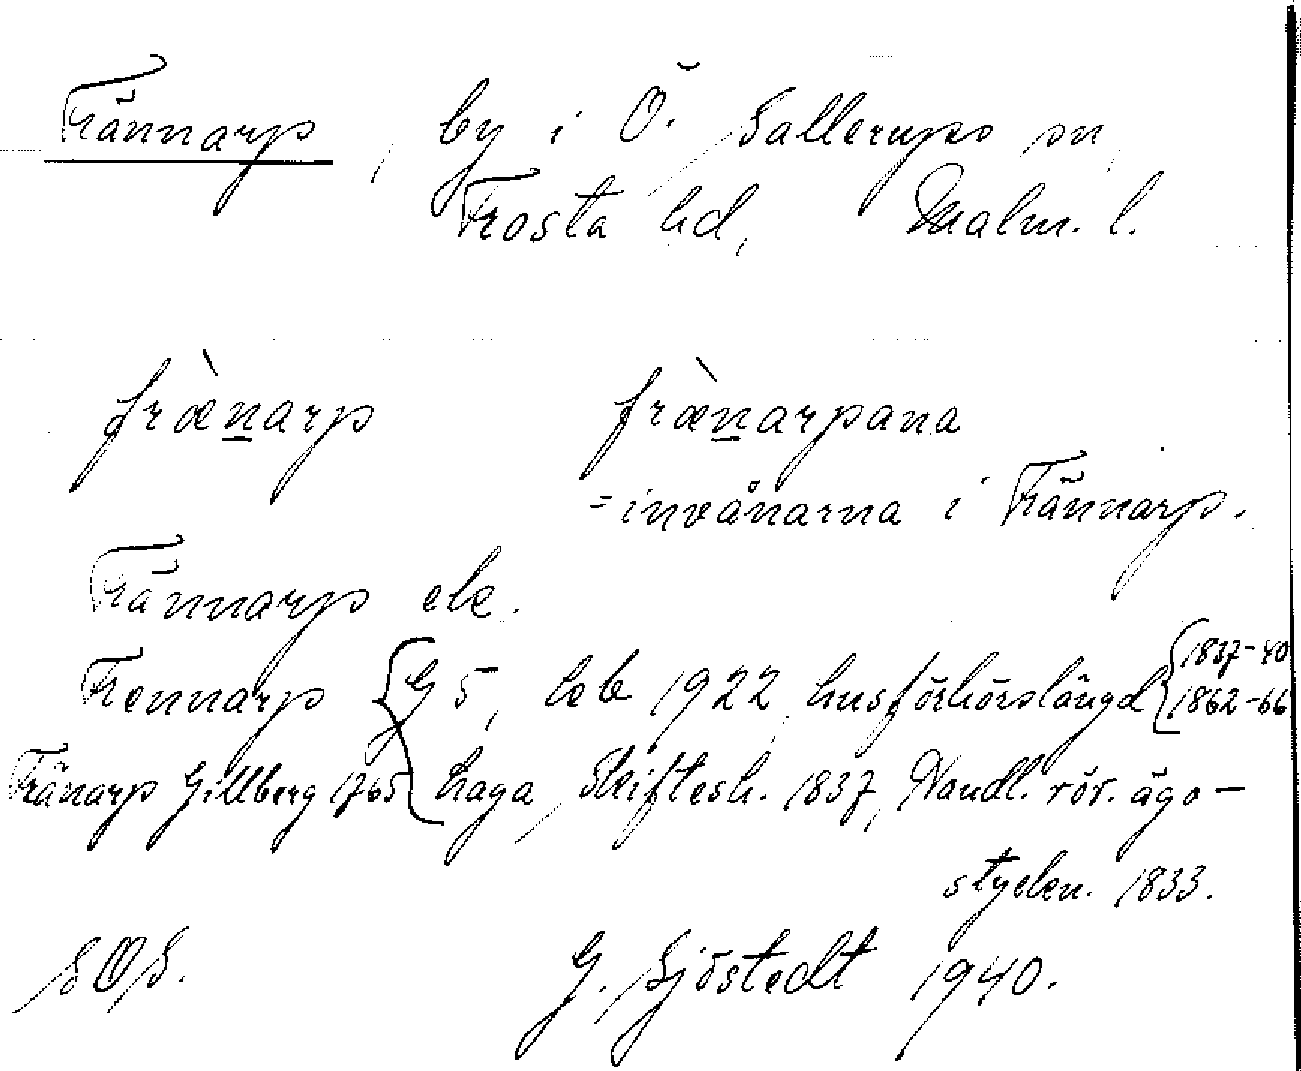 Frännarp, by i Ö. Sallerups sn,
Frosta hd, Malm. l.
fræ̀n̲arp fræ̀n̲arpana
= invånarna i Frännarp.
Frännarp ek.
Frennarp { G 5, lok 1922, husförhörslängd { 1837-40 1862-66
Fränarp Gillberg 1765 Laga Skiftesh. 1837, Handl. rör. ägo-
stycken. 1833.
SOS. G. Sjöstedt 1940.